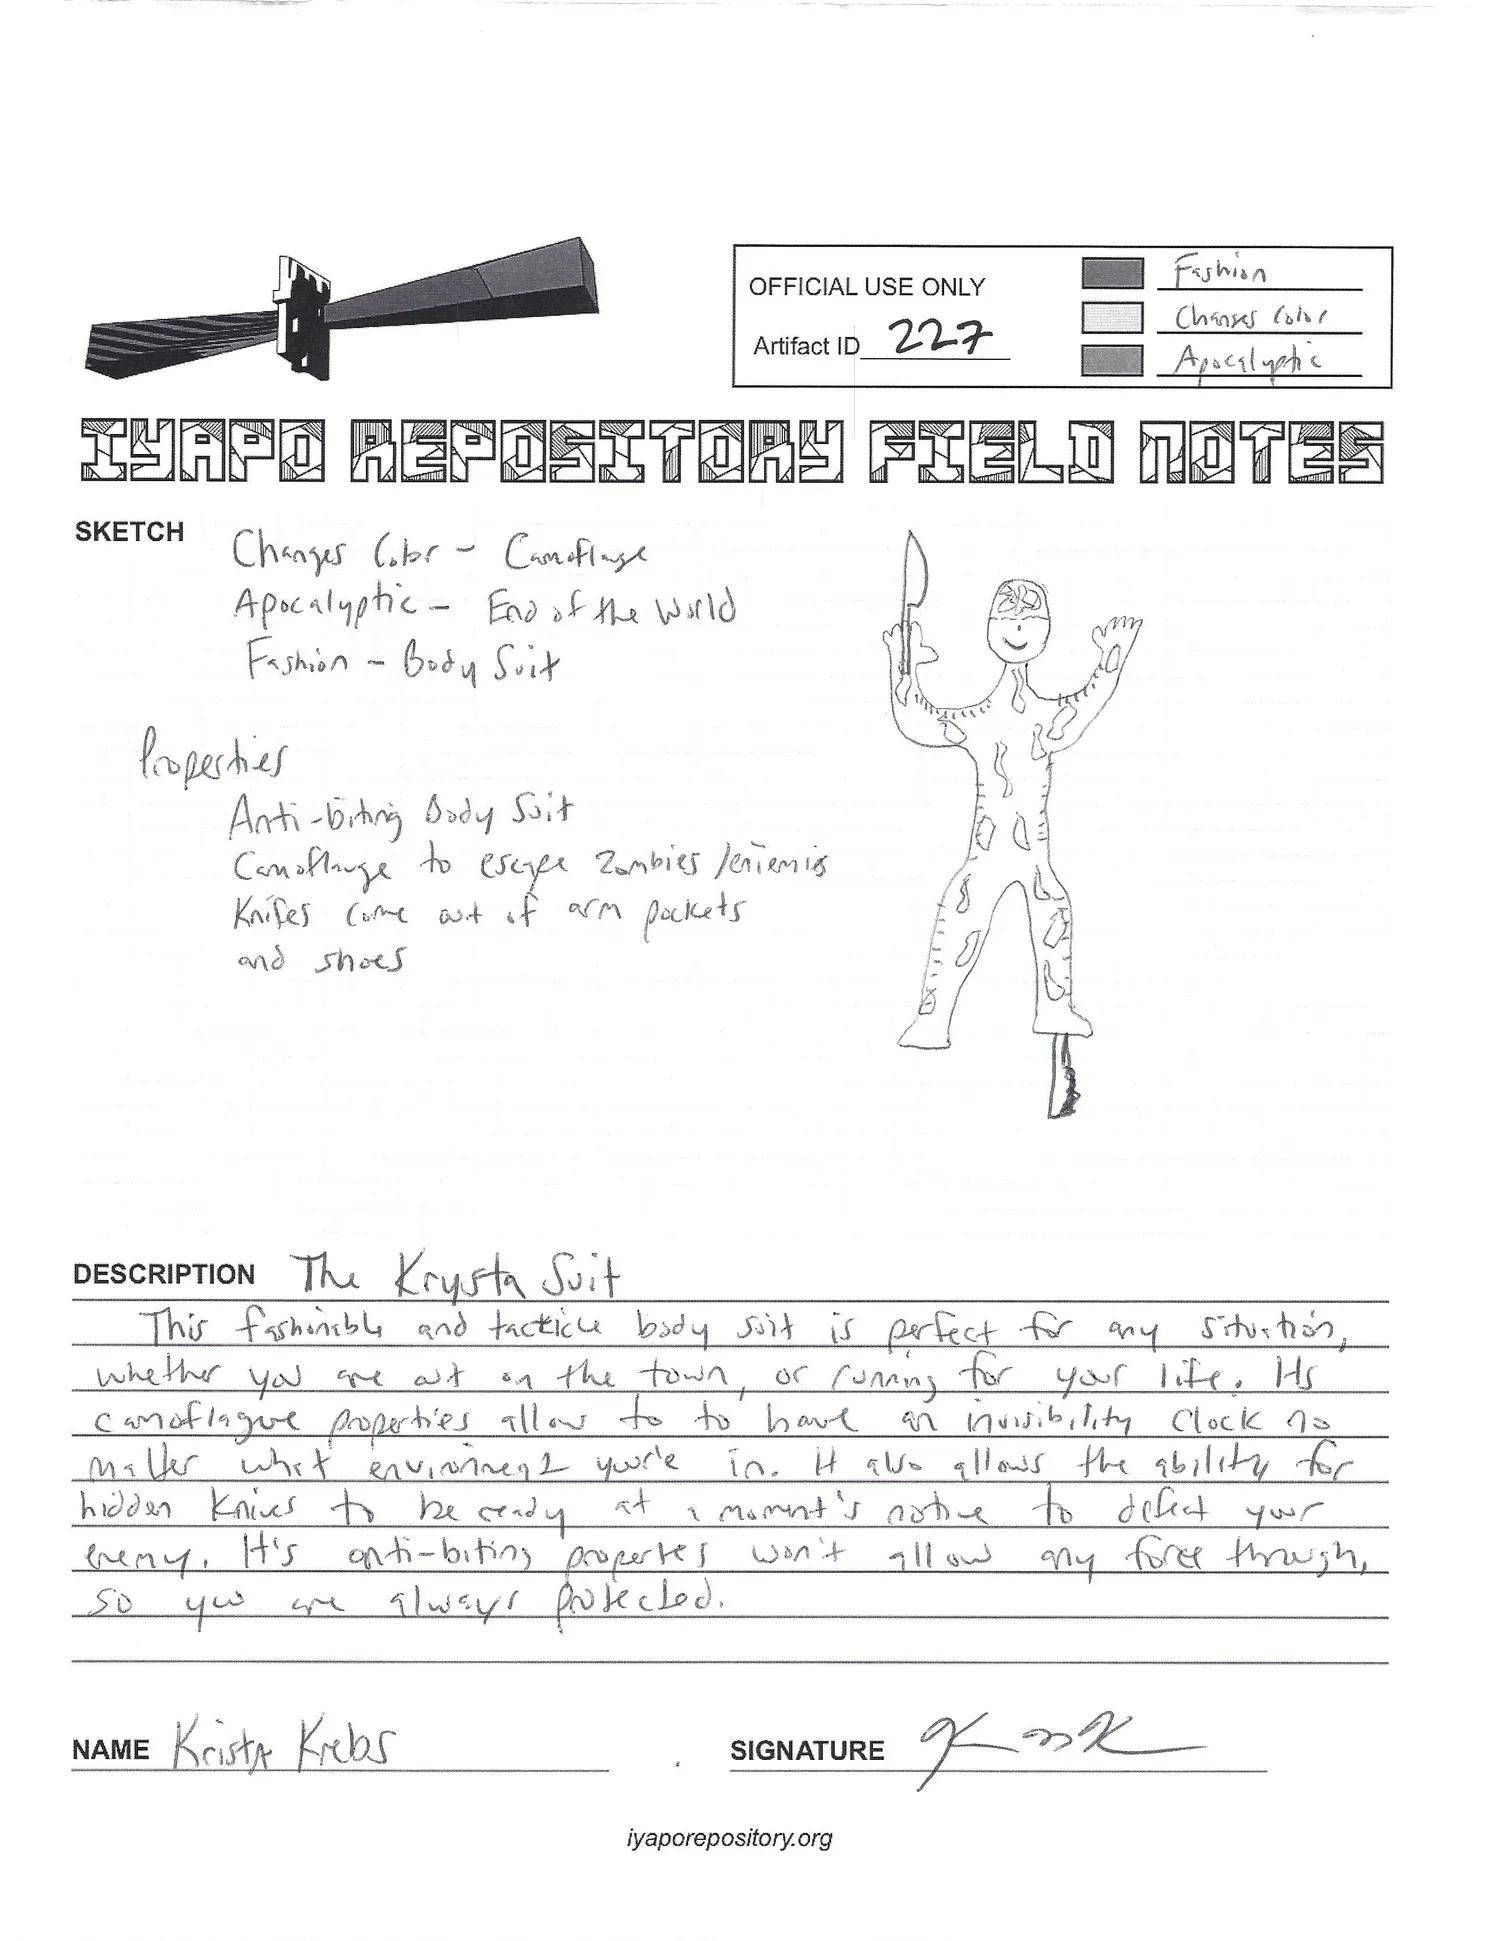 OFFICIAL USE ONLY
Artifact ID 227
Fashion
Changes Color
Apocalyptic
IYAPO REPOSITORY FIELD NOTES
SKETCH
Changes Color - Camoflauge
Apocalyptic - End of the World
Fashion - Body Suit
Properties
Anti-biting Body Suit
Camoflauge to escape Zombies/enemies
Knifes come out of arm pockets
and shoes
DESCRIPTION The Krysta Suit
This fashionable and tacticle body suit is perfect for any situation,
whether you are out on the town, or running for your life. Its
camoflague properties allow to to have an invisibility clock no
matter what environment you're in. It also allows the ability for
hidden knives to be ready at a moment's notice to defect your
enemy. It's anti-biting propertes won't allow any force through,
so you are always protected.
NAME Krista Krebs
SIGNATURE
iyaporepository.org